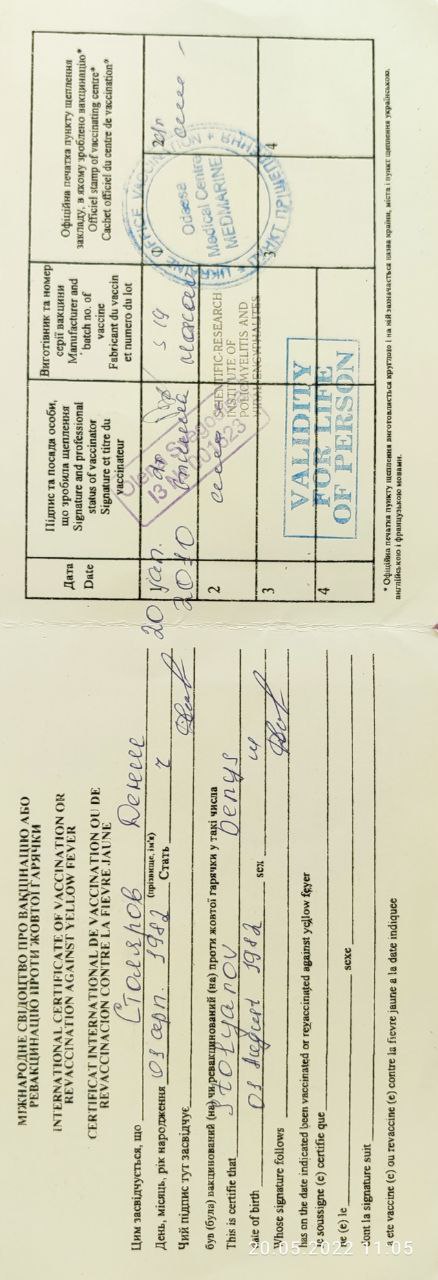 МІЖНАРОДНЕ СВІДОЦТВО ПРО ВАКЦІНАЦІЮ АБО
РЕВАКЦИНАЦІЮ ПРОТИ ЖОВТОЇ ГАРЯЧКИ
INTERNATIONAL CERTIFICATE OF VACCINATION OR
REVACCINATION AGAINST YELLOW FEVER
CERTIFICAT INTERNATIONAL DE VACCINATION OU DE
REVACCINACION CONTRE LA FIEVRE JAUNE
Цим засвідчується, що Столяров Денис
(прізвище, ім'я)
День, місяць, рік народження 01 серп. 1982 Стать ч
Чий підпис тут засвідчує
був (була) вакцинований (на) чи ревакцинований (на) проти жовтої гарячки у такі числа
This is certifie that Stolyarov Denys
date of birth 01 August 1982 sex
Whose signature follows
has on the date indicated been vaccinated or revaccinated against yellow fever
je soussigne (e) certifie que
ne (e) le sexe
dont la signature suit
a ete vaccine (e) ou revaccine (e) contre la fievre jaune a la date indiquee
20.05.2022 11:05
Дата
Date
Підпис та посада особи,
що зробила щеплення
Signature and professional
status of vaccinator
Signature et titre du
vaccinateur
Виготівник та номер
серії вакцини
Manufacturer and
batch no. of
vaccine
Fabricant du vaccin
et numero du lot
Офіційна печатка пункту щеплення
закладу, в якому зроблено вакцинацію*
Officiel stamp of vaccinating centre*
Cachet officiel du centre de vaccination*
20
2010
2
3
4
SCIENTIFIC-RESEARCH
INSTITUTE OF
POLIOMYELITIS AND
VIRAL ENCYPHALITES
UKRAINE OFFICE VACCINATION
Odessa
Medical Centre
MEDMARINE
ПУНКТ ПРІЩЕПЛЕННЯ
3
4
VALIDITY
FOR LIFE
OF PERSON
* Офіційна печатка пункту щеплення виготовляється круглою і на ній зазначається назва країни, міста і пункт щеплення українською,
англійською і французькою мовами.